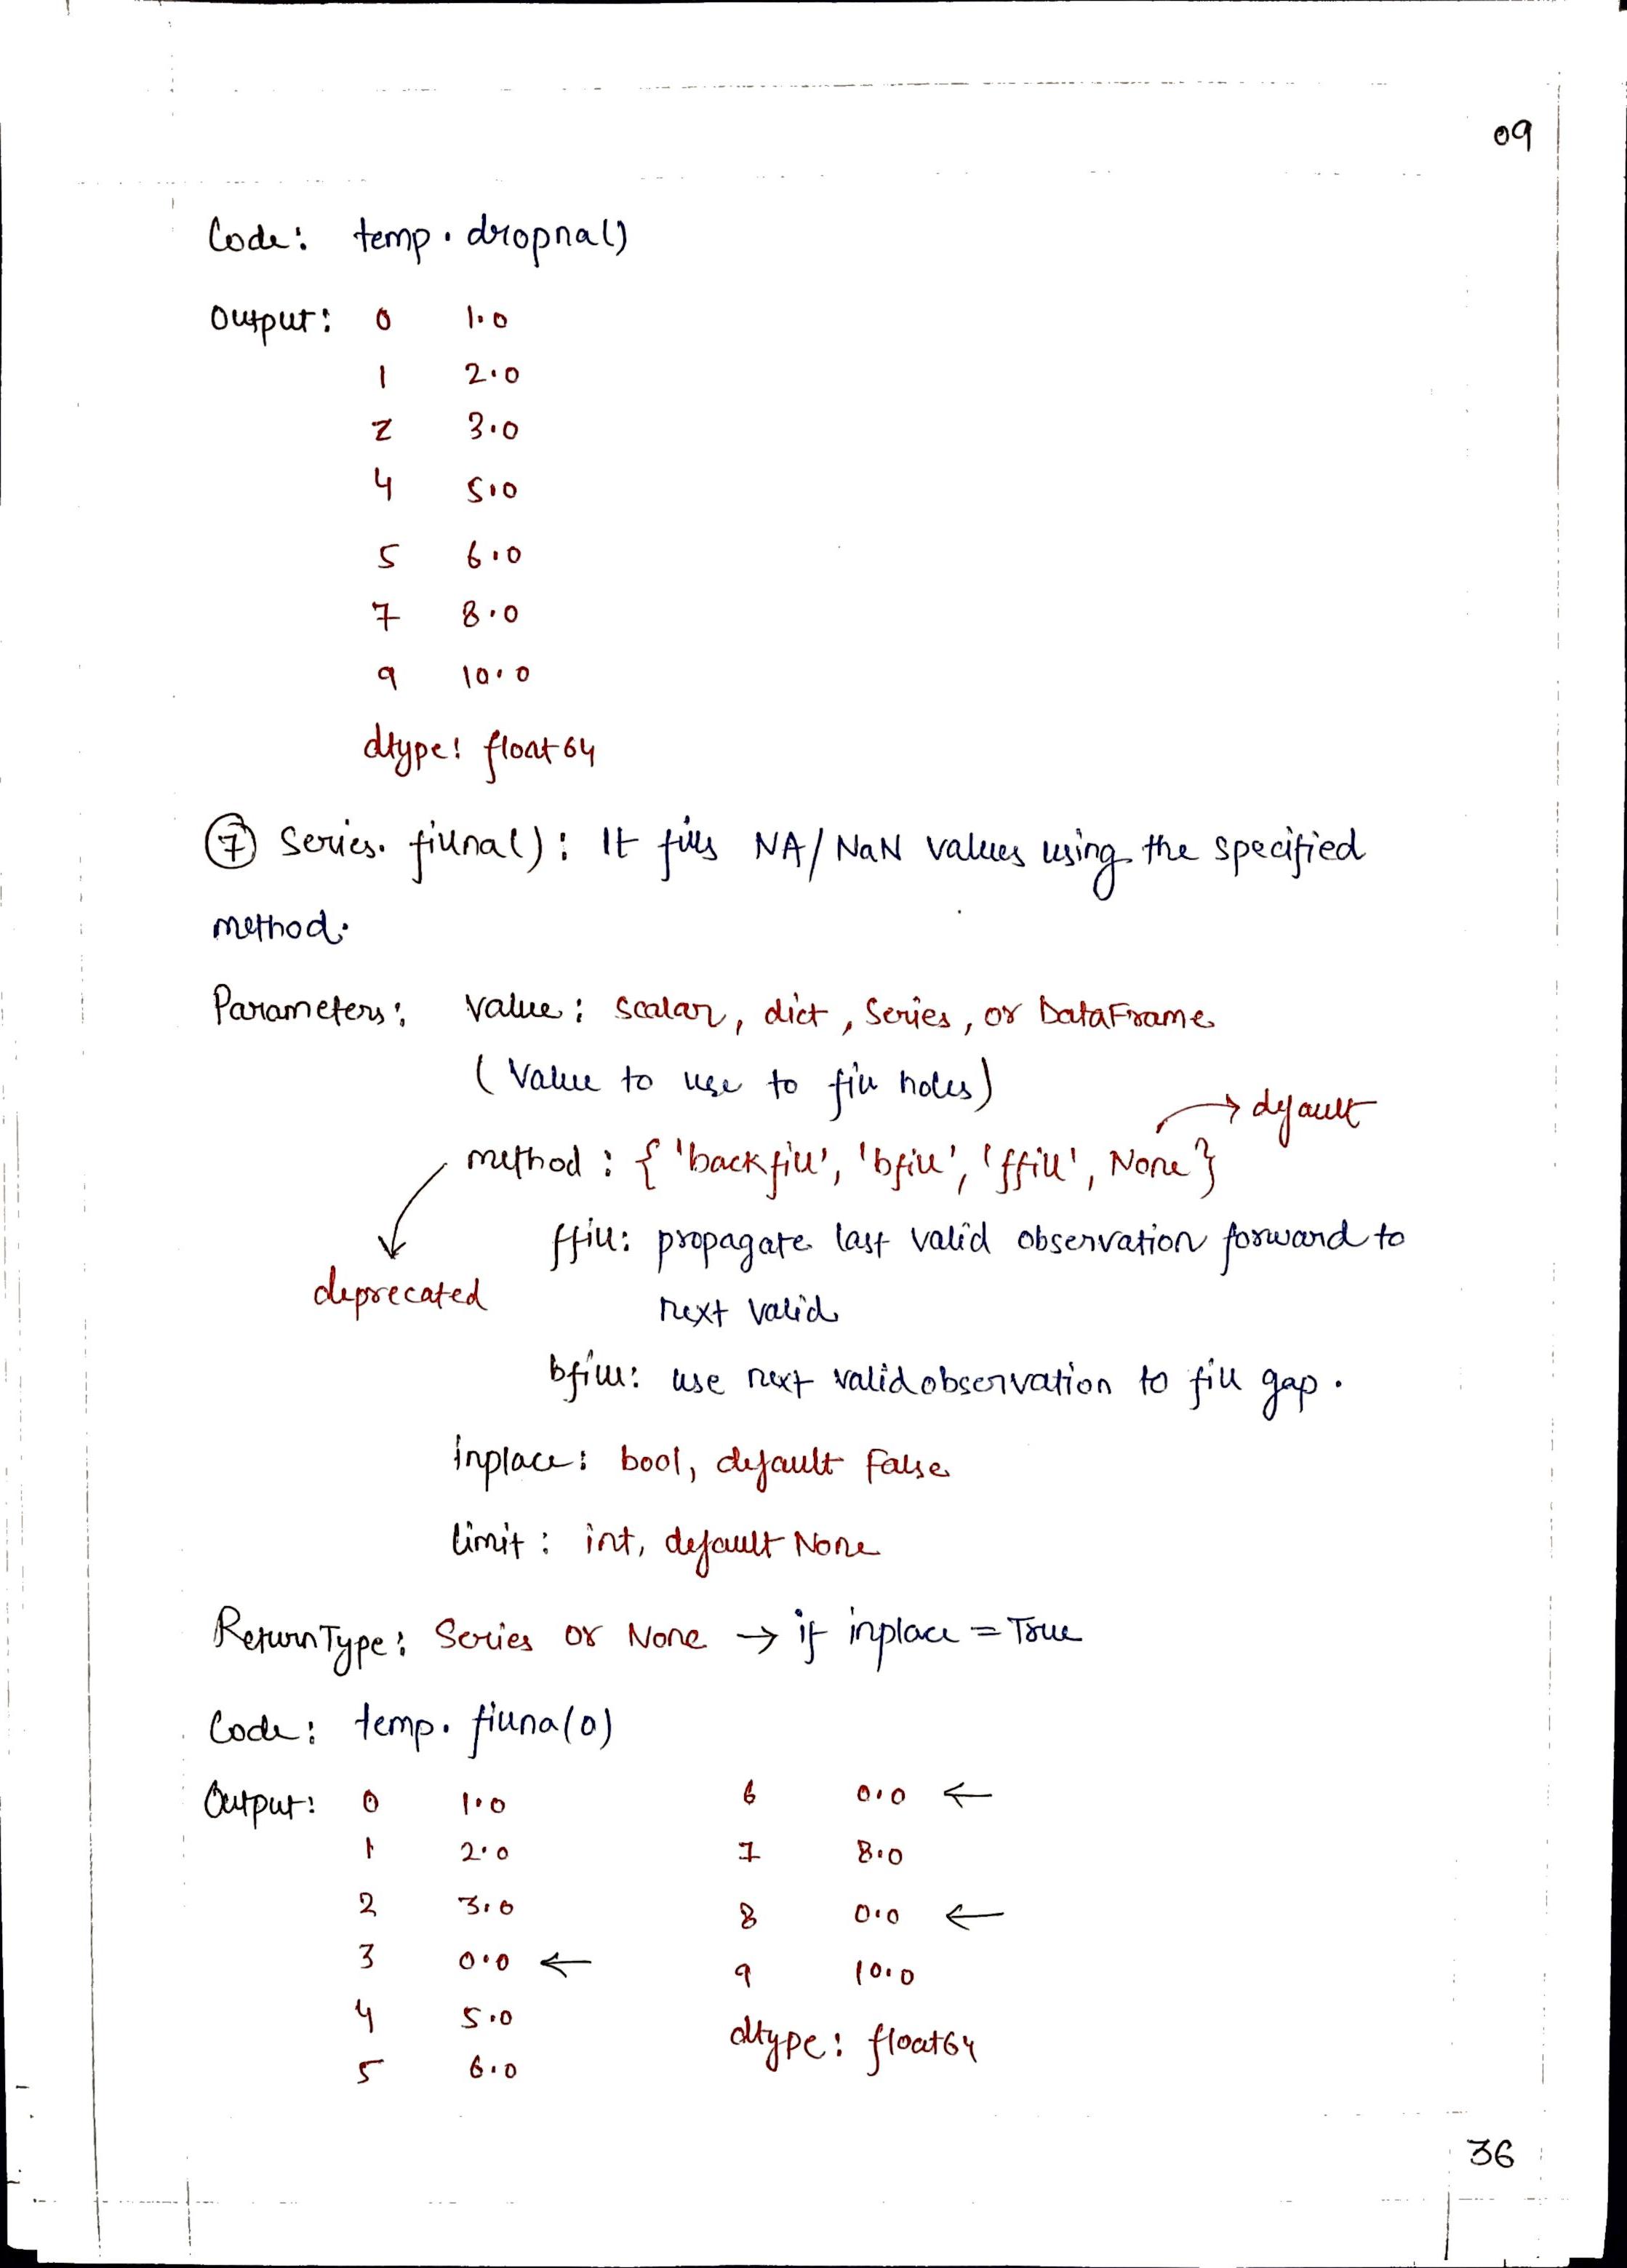 09
Code: temp.dropna()
Output: 0 1.0
1 2.0
2 3.0
4 5.0
5 6.0
7 8.0
9 10.0
dtype: float64
⑦ Series.fillna(): It fills NA/NaN values using the specified
method.
Parameters: value: scalar, dict, Series, or DataFrame
(Value to use to fill holes)
→ default
method: {'backfill', 'bfill', 'ffill', None}
deprecated
ffill: propagate last valid observation forward to
next valid
bfill: use next valid observation to fill gap.
inplace: bool, default False
limit: int, default None
Return Type: Series or None → if inplace = True
Code: temp.fillna(0)
Output: 0 1.0 6 0.0 ←
1 2.0 7 8.0
2 3.0 8 0.0 ←
3 0.0 ← 9 10.0
4 5.0 dtype: float64
5 6.0
36